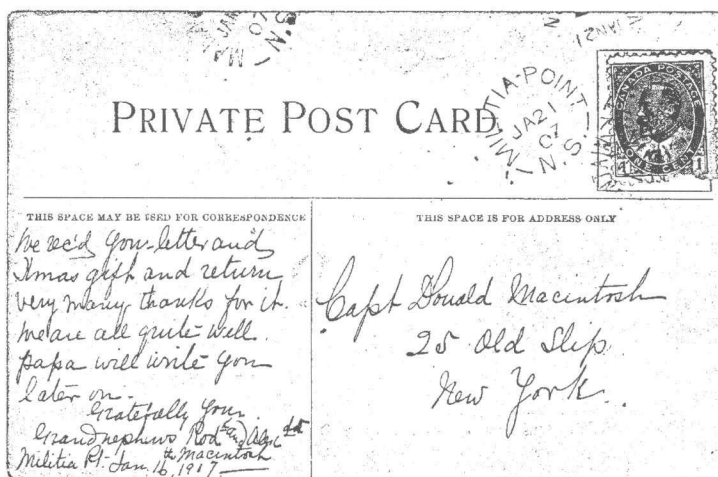 JAN
07
N.S.
JAN 21
MILITIA-POINT
JA 21
07
N.S.
CANADA POSTAGE
1 ONE CENT 1
PRIVATE POST CARD
THIS SPACE MAY BE USED FOR CORRESPONDENCE
We rec'd your letter and
Xmas gift and return
very many thanks for it.
We are all quite well.
Papa will write you
later on.
Gratefully Your
Grandnephews Rod and Alex
Macintosh
Militia Pt. Jan. 16th, 1907
THIS SPACE IS FOR ADDRESS ONLY
Capt Donald Macintosh
25 Old Slip
New York.